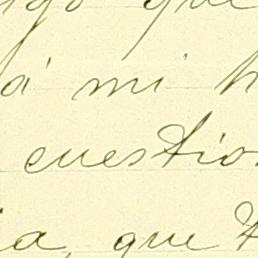 que
á mi
cuestio
ia, que